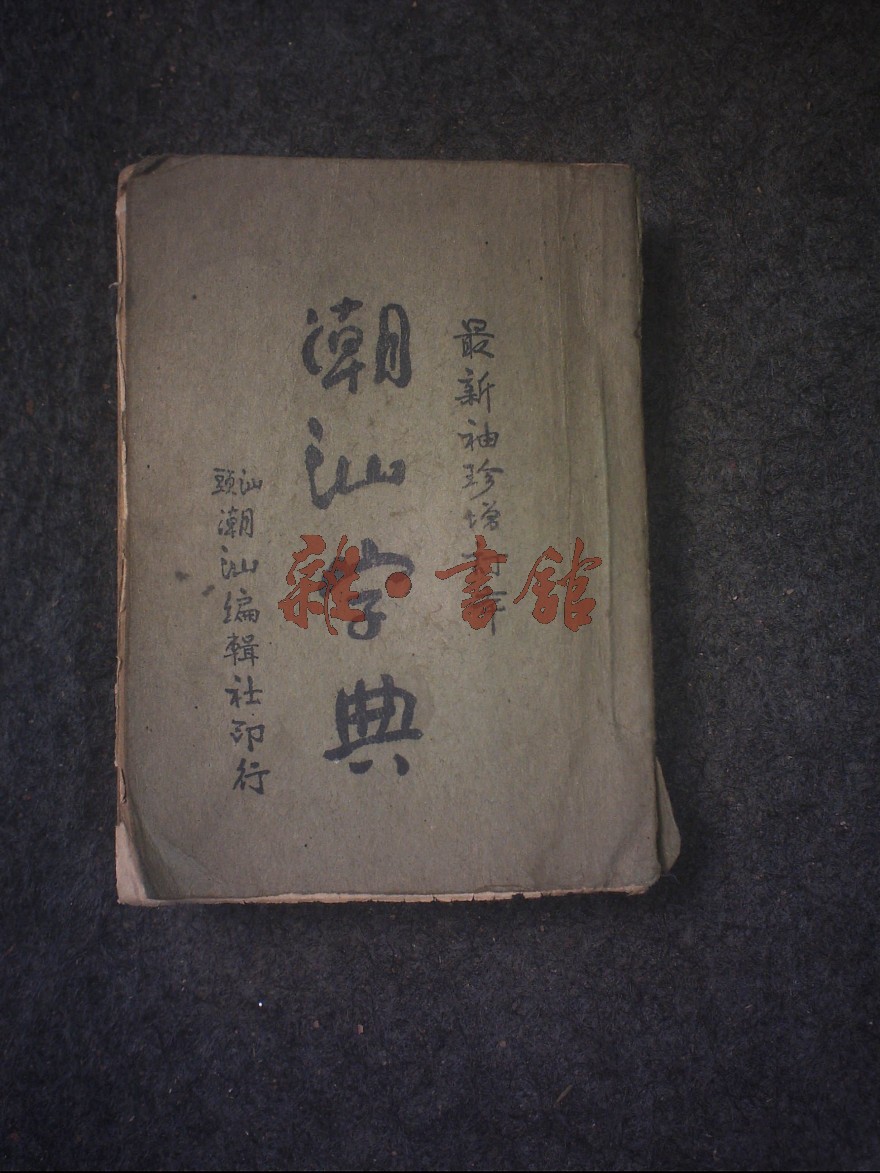 最新袖珍增訂本
潮汕字典
汕頭潮汕編輯社印行
雜·書館